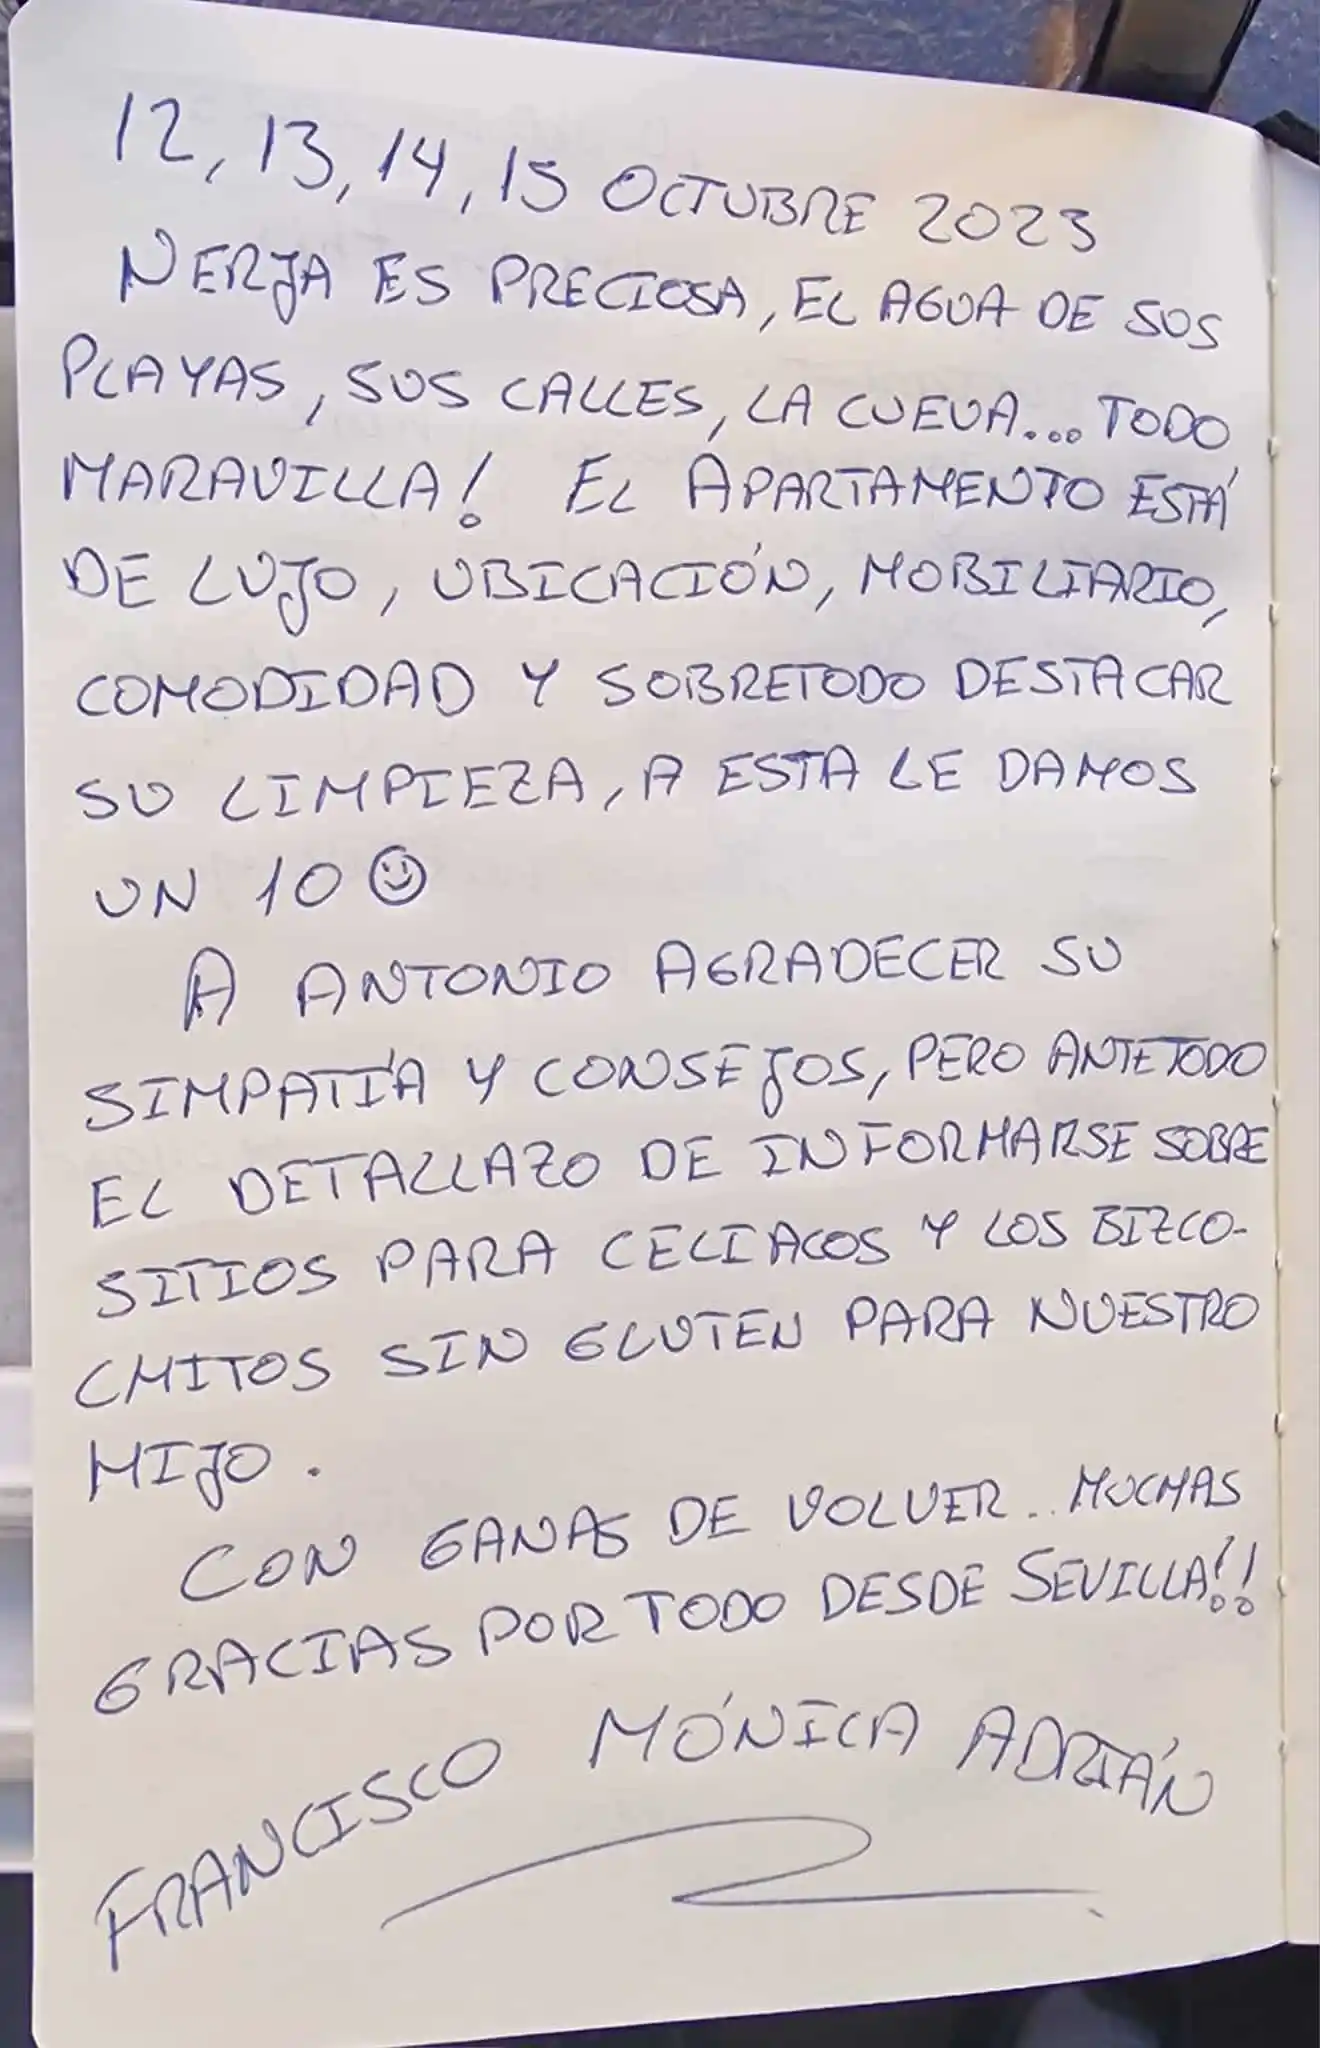 12, 13, 14, 15 OCTUBRE 2023
NERJA ES PRECIOSA, EL AGUA DE SUS
PLAYAS, SUS CALLES, LA CUEVA... TODO
MARAVILLA! EL APARTAMENTO ESTÁ
DE LUJO, UBICACIÓN, MOBILIARIO,
COMODIDAD Y SOBRETODO DESTACAR
SU LIMPIEZA, A ESTA LE DAMOS
UN 10 ☺
A ANTONIO AGRADECER SU
SIMPATÍA Y CONSEJOS, PERO ANTE TODO
EL DETALLAZO DE INFORMARSE SOBRE
SITIOS PARA CELIACOS Y LOS BIZCO-
CHITOS SIN GLUTEN PARA NUESTRO
HIJO.
CON GANAS DE VOLVER... MUCHAS
GRACIAS POR TODO DESDE SEVILLA!!
FRANCISCO MÓNICA ADRIÁN